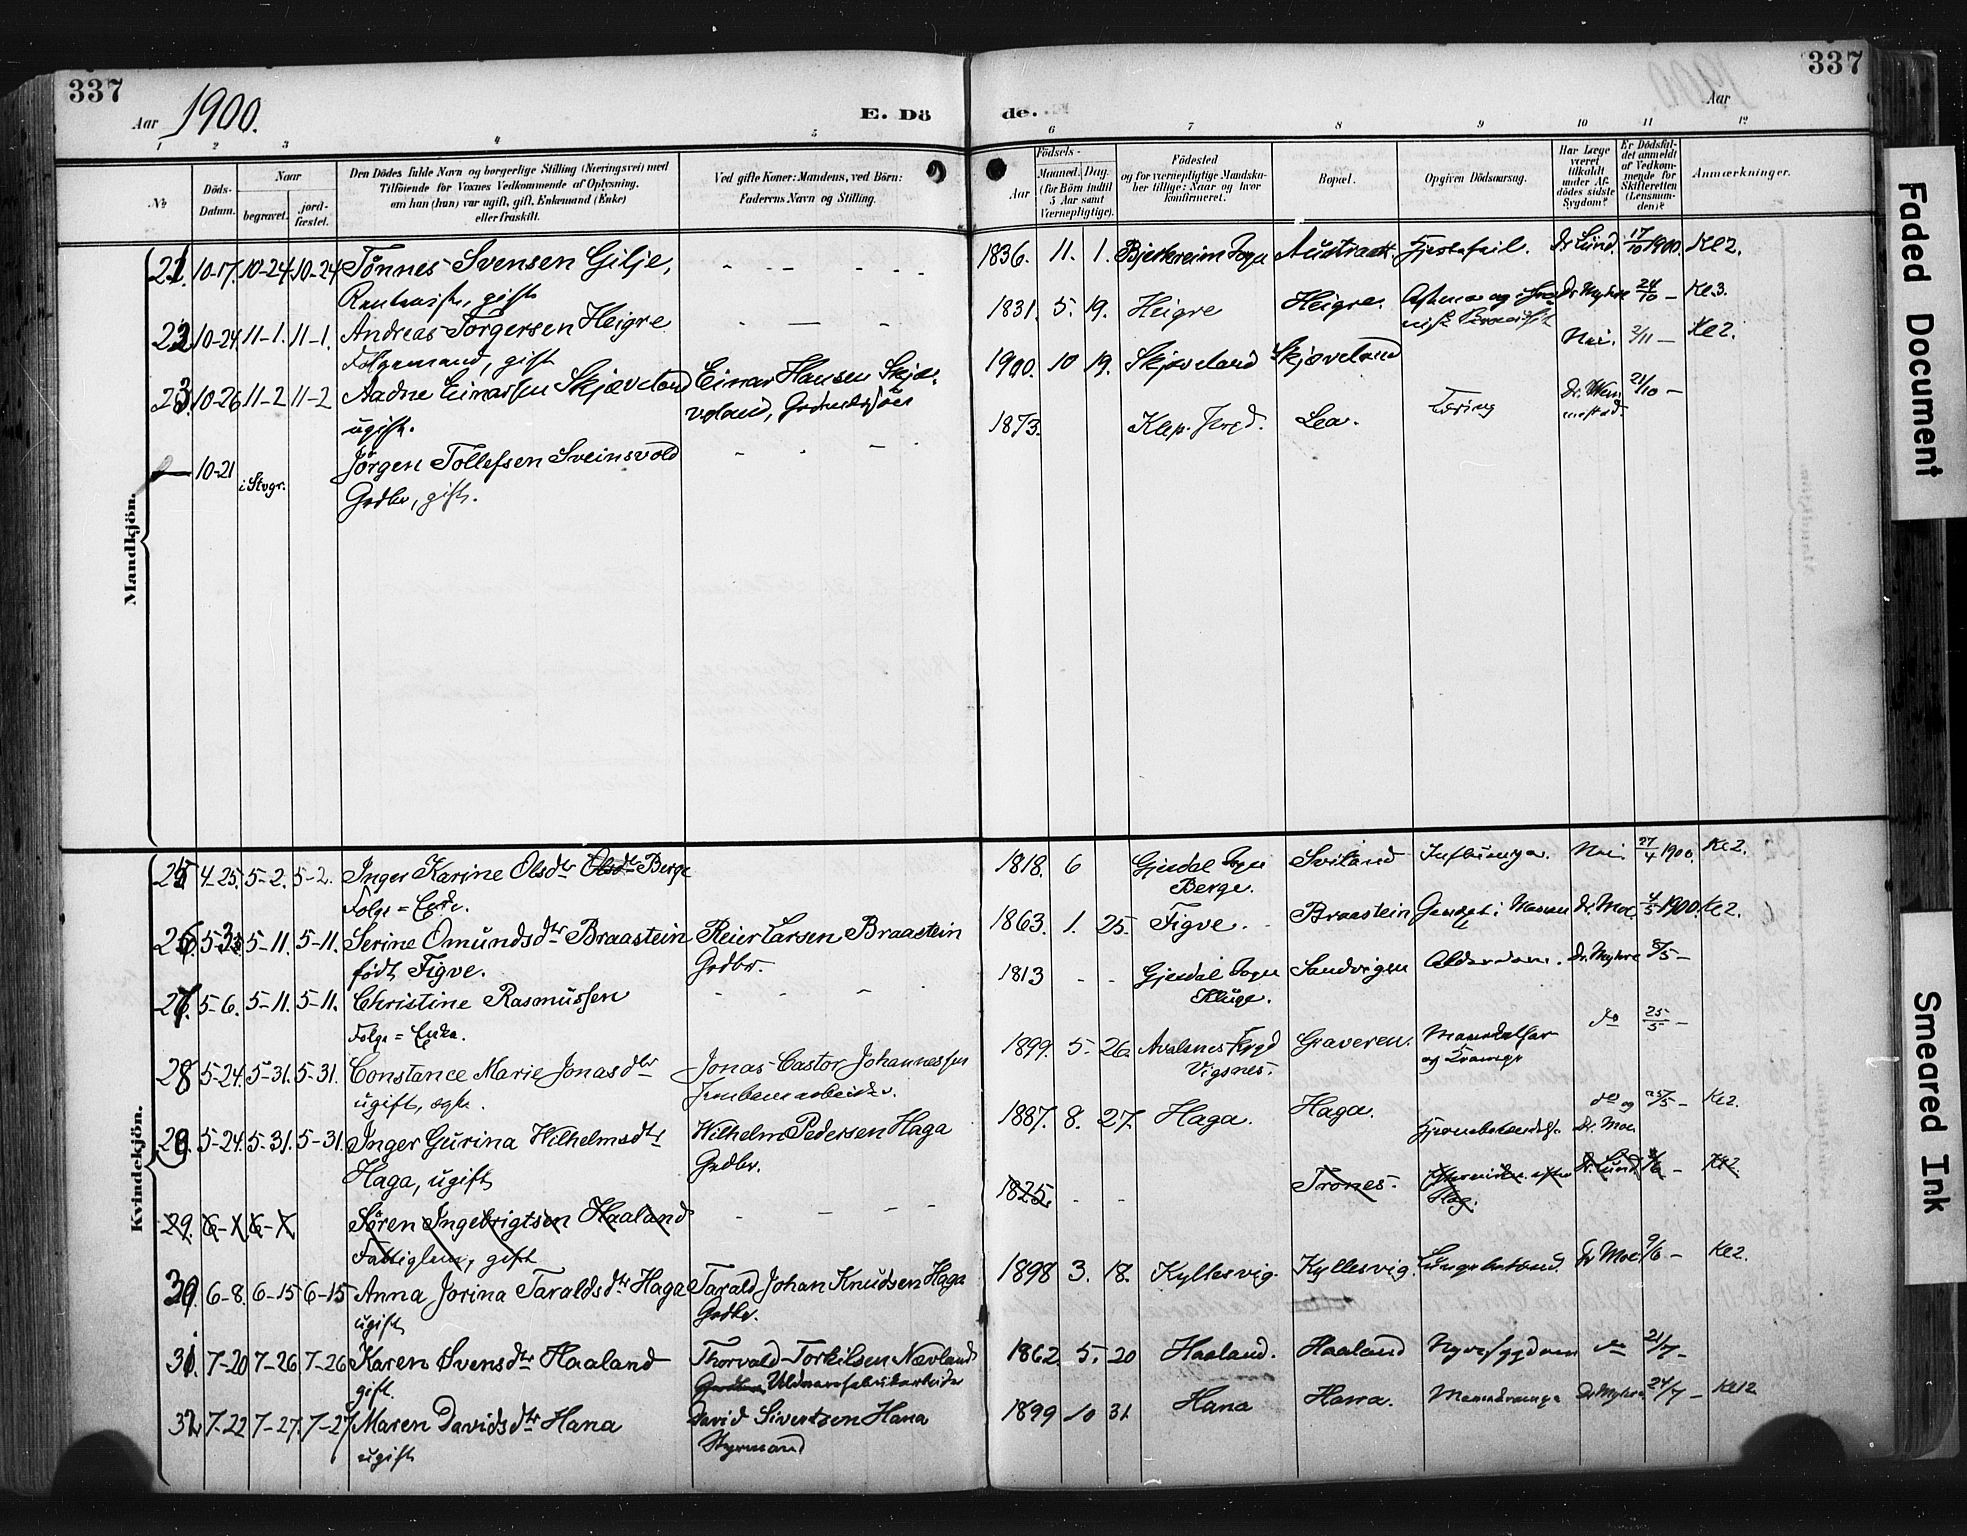 337
337
Aar 1900.
E. Dö
de.
Aar
1 2 3 4 5 6 7 8 9 10 11 12
№
Döds-Datum.
Naar
begravet.
jord-fæstet.
Den Dödes fulde Navn og borgerlige Stilling (Næringsvei) med
Tilföiende for Voxnes Vedkommende af Oplysning,
om han (hun) var ugift, gift, Enkemand (Enke)
eller fraskilt.
Ved gifte Koner: Mandens, ved Börn:
Faderens Navn og Stilling.
Aar
Födsels-
Maaned. Dag.
(for Börn indtil
5 Aar samt
Værnepligtige).
Födested
og for værnepligtige Mandska-
ber tillige: Naar og hvor
konfirmeret.
Bopæl.
Opgiven Dödsaarsag.
Har Læge
været
tilkaldt
under Af-
dödes sidste
Sygdom?
Er Dödsfal-
det anmeldt
af Vedkom-
mende for
Skifteretten
(Lensman-
den)?
Anmærkninger.
Mandkjön.
21. 10-17. 10-24. 10-24 Tönnes Svensen Gilje, - - - - 1836. 11. 1. Bjerkreim Sogn Austraatt. Hjertefeil. Dr Lund. 17/10 1900. Kl 2.
gift
22 10-24 11-1. 11-1. Andreas Torgersen Heigre - - - 1831. 5. 19. Heigre Heigre. Dr Myhre 24/10 - Kl 3.
Folgemand, gift
23 10-26 11-2 11-2 Aadne Einarssen Skjæveland Einar Hansen Skjæ-
veland, 1900. 10 19. Skjæveland Skjæveland Nei. 2/11 - Kl 2.
ugift.
10-21 i Stvgr. Jörgen Tollefsen Sveinsvold - - - 1873. Klep Lea. Tæring 21/10 -
Grdbr, gift.
Kvindekjön.
25 4-25. 5-2. 5-2. Inger Karine Olsdtr Olsdtr Berge 1818. 6 Gjesdal Sogn
Berge. Sviland Nei. 27/4 1900. Kl 2.
Folge=Enke.
26. 5-3 5-11. 5-11. Serine Omundsdtr Braastein Reier Larsen Braastein
Grdbr. 1863. 1. 25. Figve. Braastein Dr. Moe 4/5 1900. Kl 2.
födt Figve.
27. 5-6. 5-11. 5-11. Christine Rasmussen - - - - 1813 - - Gjesdal Sogn
Sandvigen Alderdom. Dr. Myhre 8/5 -
Folge=Enke.
28 5-24. 5-31. 5-31. Constance Marie Jonasdtr Jonas Castor Johannessen
Jernbanearbeider. 1899. 5. 26. Avalsnes
Vigsnes. Graveren. do 25/5 -
ugift, ægte.
29. 5-24. 5-31. 5-31. Inger Gurina Wilhelmsdtr Wilhelm Pedersen Haga
Grdbr. 1887. 8. 27. Haga. Haga. Hjernebetændelse. do og
Dr. Moe 25/5 - Kl 2.
Haga, ugift
29. 6-1. 6-1 Sören Ingebrigtsen Haaland - - - - 1825. - - Trones. Slag. Dr. Lund. Kl 2.
Fattiglem, gift
30. 6-8. 6-15 6-15 Anna Jorina Taraldsdtr Haga Tarald Johan Knudsen Haga
Grdbr. 1898 3. 18. Kyllesvig. Kyllesvig. Lungebetænd. Dr Moe 9/6 - Kl 2.
ugift
31. 7-20 7-26 7-26 Karen Svensdtr Haaland Thorvald Torkilsen Nævland
Uldvarefabrikarbeider 1862. 5. 20 Haaland. Haaland Nyresygdom do 21/7 -
gift.
32 7-22 7-27. 7-27 Maren Davidsdtr Hana David Sivertsen Hana
Styrmand 1899 10 31. Hana Hana. Dr Myhre 24/7 - Kl 12
ugift
Faded Document
Smeared Ink